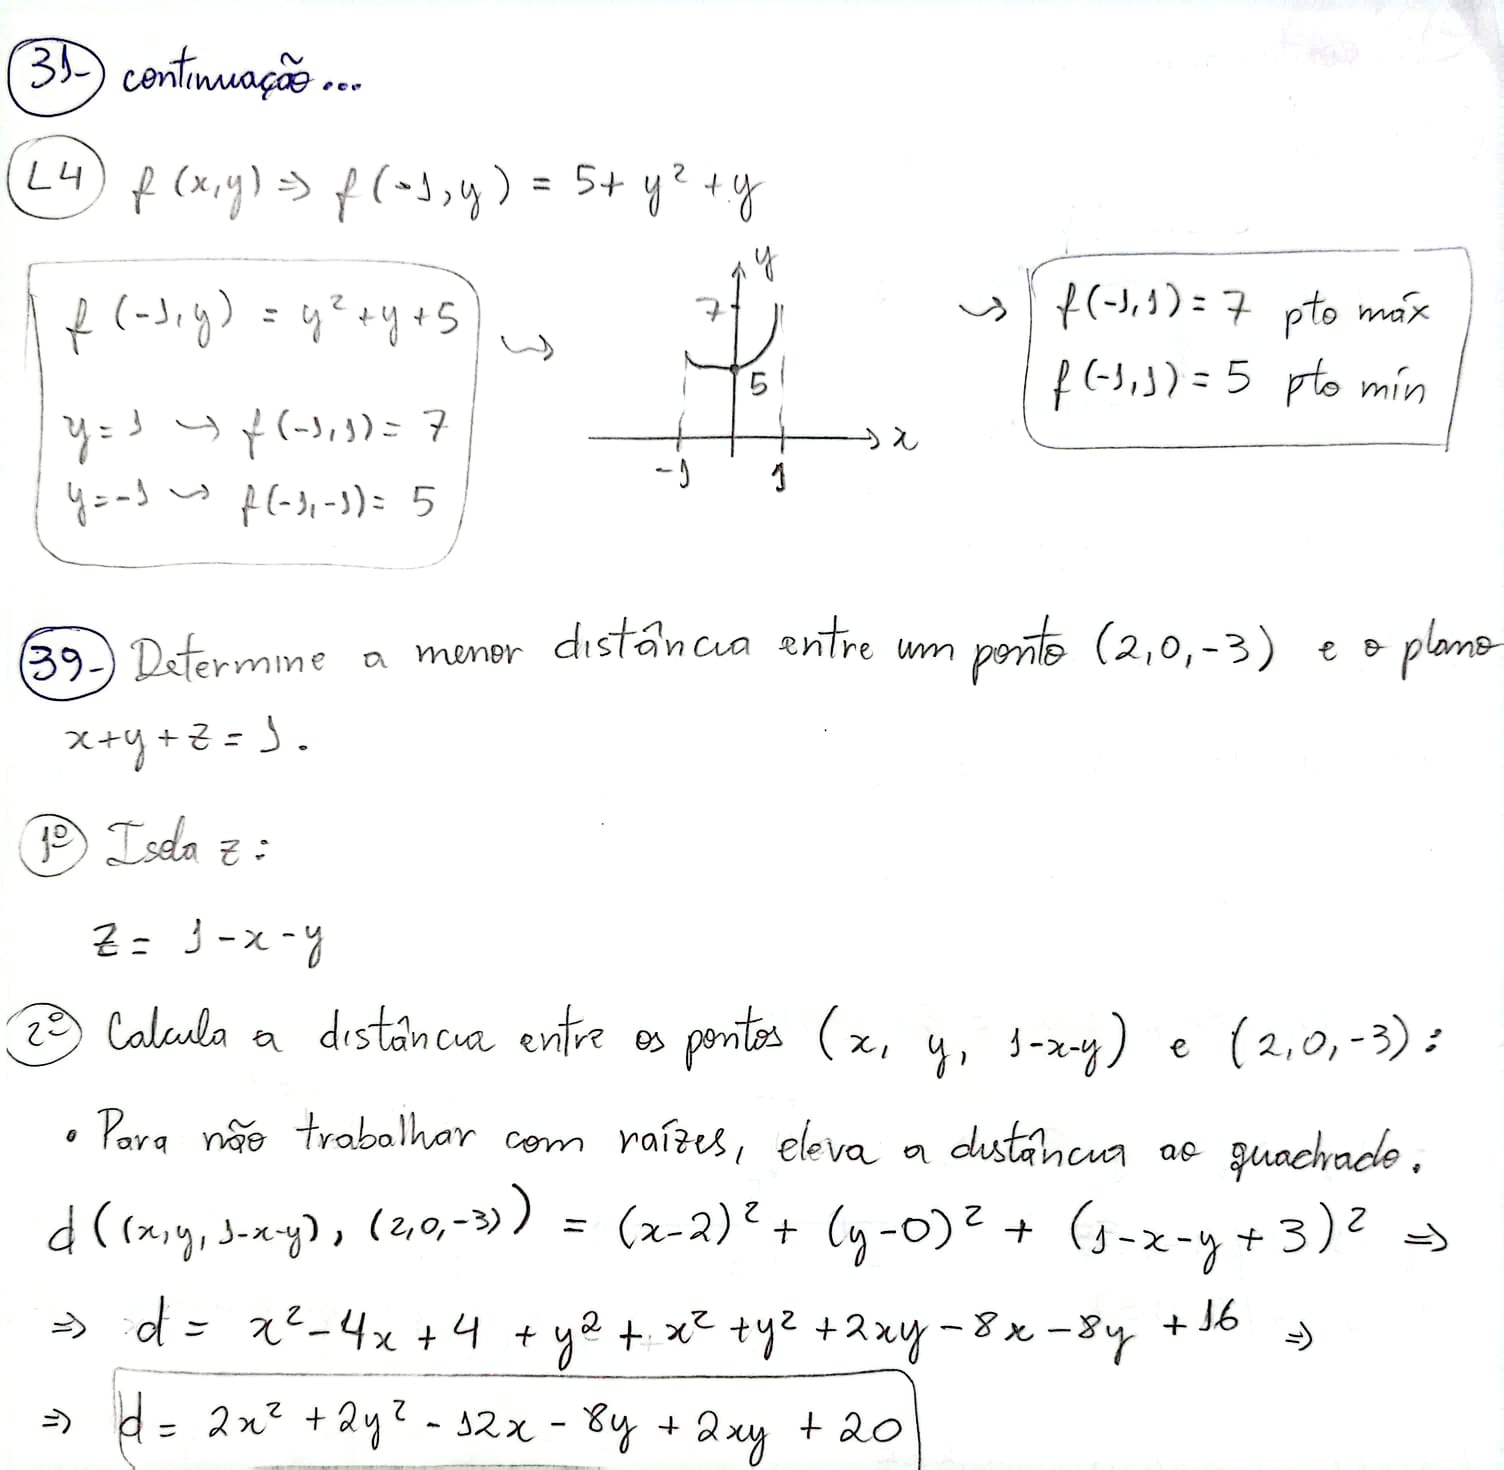 31- continuação...
L4 f(x,y) ⇒ f(-1,y) = 5+ y² + y
f(-1,y) = y²+y+5
y=1 ↝ f(-1,1) = 7
y=-1 ↝ f(-1,-1) = 5
↝
y
7
5
-1 1
x
↝ f(-1,1) = 7 pto máx
f(-1,1) = 5 pto mín
39- Determine a menor distância entre um ponto (2,0,-3) e o plano
x+y+z=1.
1º Isola z:
z = 1-x-y
2º Calcula a distância entre os pontos (x, y, 1-x-y) e (2,0,-3):
• Para não trabalhar com raízes, eleva a distância ao quadrado.
d((x,y,1-x-y), (2,0,-3)) = (x-2)² + (y-0)² + (1-x-y+3)² ⇒
⇒ d = x²-4x+4 + y² + x² + y² + 2xy - 8x - 8y + 16 ⇒
⇒ d = 2x² + 2y² - 12x - 8y + 2xy + 20